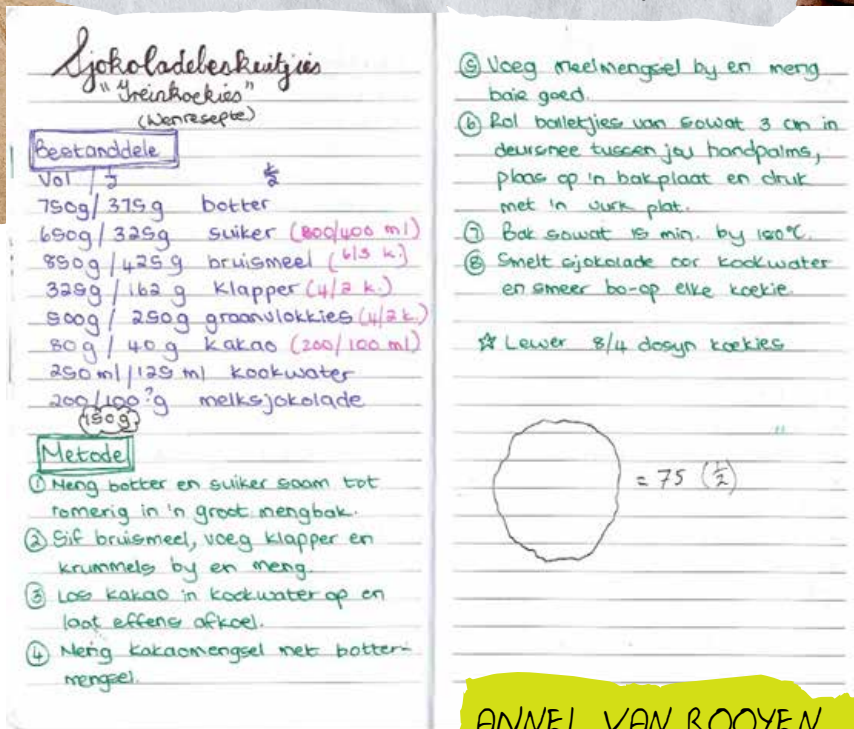 Sjokoladebeskuitjies
"Treinkoekies"
(Wenresepte)
Bestanddele
Vol / ½ ½
750g / 375g botter
650g / 325g suiker (800/400 ml)
850g / 425g bruismeel (6/3 k.)
325g / 162 g Klapper (4/2 k.)
500g / 250g graanvlokkies (4/2 k.)
80g / 40g kakao (200/100 ml)
250 ml / 125 ml kookwater
200/100?g melksjokolade
150g
Metode
① Meng botter en suiker saam tot
romerig in 'n groot mengbak.
② Sif bruismeel, voeg klapper en
krummels by en meng.
③ Los kakao in kookwater op en
laat effens afkoel.
④ Meng kakaomengsel met botter-
mengsel.
⑤ Voeg meelmengsel by en meng
baie goed.
⑥ Rol balletjies van sowat 3 cm in
deursnee tussen jou handpalms,
plaas op 'n bakplaat en druk
met 'n vurk plat.
⑦ Bak sowat 15 min. by 180°C.
⑧ Smelt sjokolade oor kookwater
en smeer bo-op elke koekie.
☆ Lewer 8/4 dosyn koekies
= 75 (½)
ANNEL VAN ROOYEN